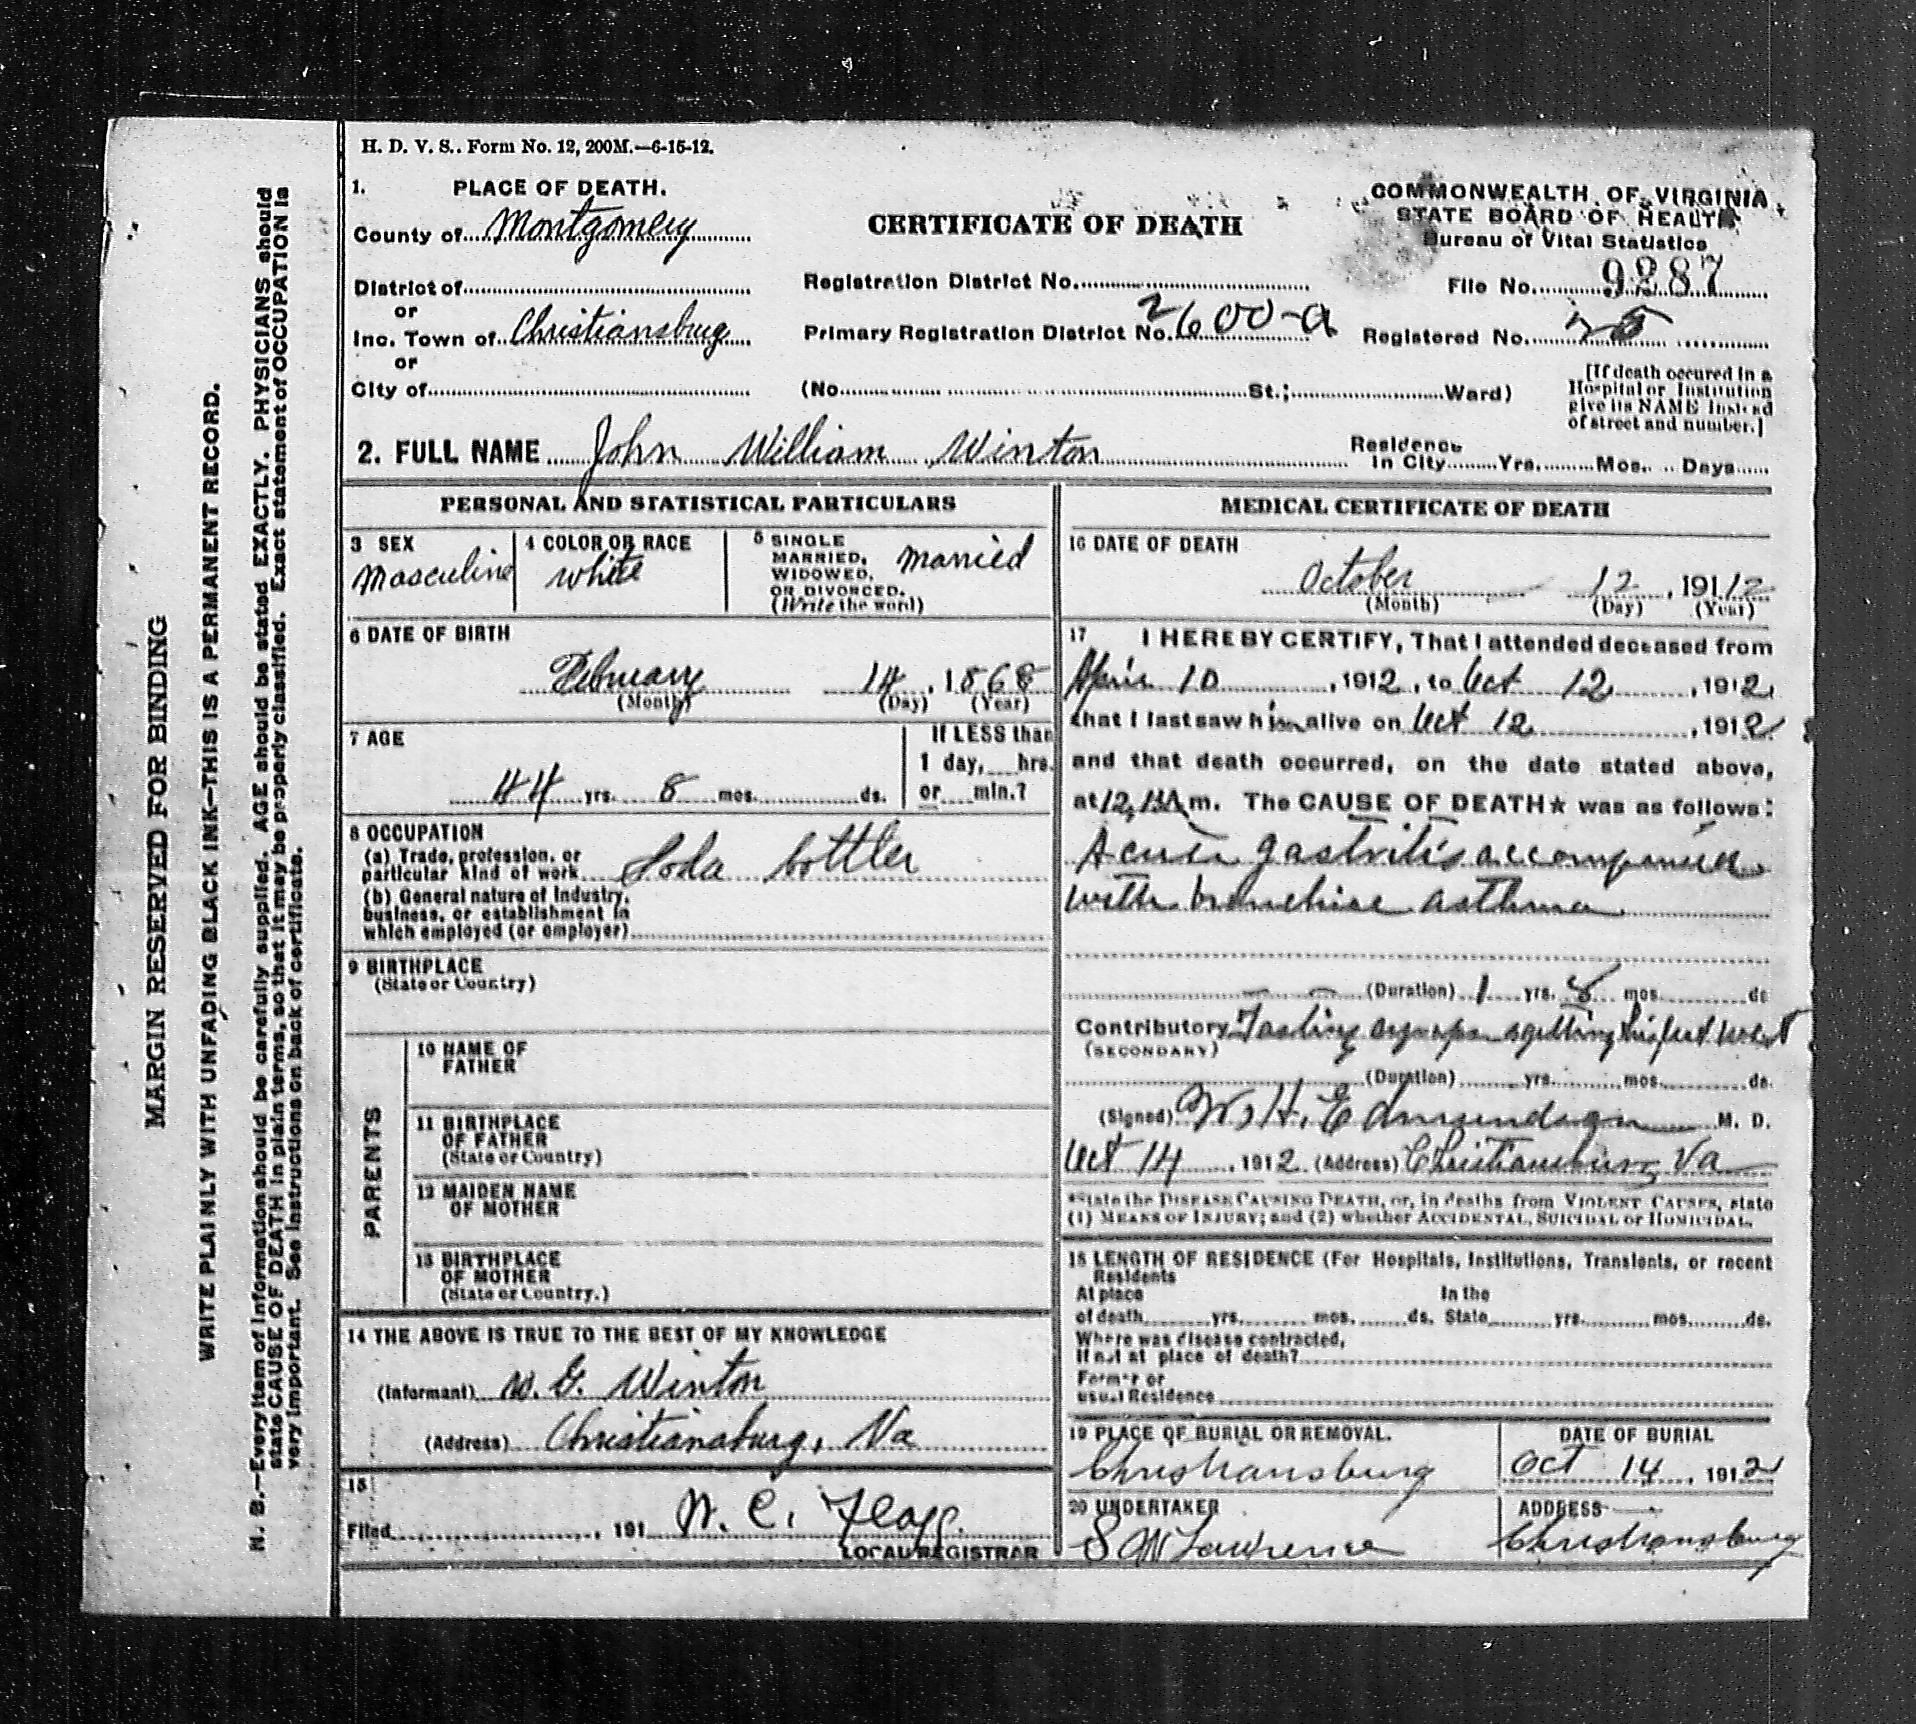 H. D. V. S.. Form No. 12, 200M.—6-15-12.
1. PLACE OF DEATH.
County of Montgomery
District of
or
Inc. Town of Christiansburg
or
City of
CERTIFICATE OF DEATH
Registration District No.
Primary Registration District No. 2600-a
(No. St.; Ward)
COMMONWEALTH OF VIRGINIA
STATE BOARD OF HEALTH
Bureau of Vital Statistics
File No. 9287
Registered No. 25
[If death occured in a
Hospital or Institution
give its NAME instead
of street and number.]
2. FULL NAME John William Winton
Residence
In City Yrs. Mos. Days
PERSONAL AND STATISTICAL PARTICULARS
3 SEX
Masculine
4 COLOR OR RACE
White
5 SINGLE
MARRIED,
WIDOWED,
OR DIVORCED.
(Write the word)
Married
6 DATE OF BIRTH
February 14, 1868
(Month) (Day) (Year)
7 AGE
44 yrs. 8 mos. ds.
If LESS than
1 day, hrs.
or min.?
8 OCCUPATION
(a) Trade, profession, or
particular kind of work Soda bottler
(b) General nature of Industry,
business, or establishment in
which employed (or employer)
9 BIRTHPLACE
(State or Country)
PARENTS
10 NAME OF
FATHER
11 BIRTHPLACE
OF FATHER
(State or Country)
12 MAIDEN NAME
OF MOTHER
13 BIRTHPLACE
OF MOTHER
(State or Country.)
14 THE ABOVE IS TRUE TO THE BEST OF MY KNOWLEDGE
(Informant) W. G. Winton
(Address) Christiansburg, Va
15
Filed , 191 W. C. Flagg.
LOCAL REGISTRAR
MEDICAL CERTIFICATE OF DEATH
16 DATE OF DEATH
October 12, 1912
(Month) (Day) (Year)
17 I HEREBY CERTIFY, That I attended deceased from
April 10, 1912, to Oct 12, 1912,
that I last saw him alive on Oct 12, 1912
and that death occurred, on the date stated above,
at m. The CAUSE OF DEATH★ was as follows:
Acute gastritis accompanied
with bronchial asthma
(Duration) 1 yrs. 8 mos. ds
Contributory Tasting syrups & getting his feet wet
(SECONDARY)
(Duration) yrs. mos. ds.
(Signed) W. H. Edmundson M. D.
Oct 14, 1912 (Address) Christiansburg Va
*State the DISEASE CAUSING DEATH, or, in deaths from VIOLENT CAUSES, state
(1) MEANS OF INJURY; and (2) whether ACCIDENTAL, SUICIDAL or HOMICIDAL.
18 LENGTH OF RESIDENCE (For Hospitals, Institutions, Transients, or recent
Residents
At place In the
of death yrs. mos. ds. State yrs. mos. ds.
Where was disease contracted,
If not at place of death?
Former or
usual Residence
19 PLACE OF BURIAL OR REMOVAL.
Christiansburg
DATE OF BURIAL
Oct 14, 1912
20 UNDERTAKER
S W Lawrence
ADDRESS
Christiansburg
MARGIN RESERVED FOR BINDING
WRITE PLAINLY WITH UNFADING BLACK INK—THIS IS A PERMANENT RECORD.
N. B.—Every item of information should be carefully supplied. AGE should be stated EXACTLY. PHYSICIANS should
state CAUSE OF DEATH in plain terms, so that it may be properly classified. Exact statement of OCCUPATION is
very important. See instructions on back of certificate.